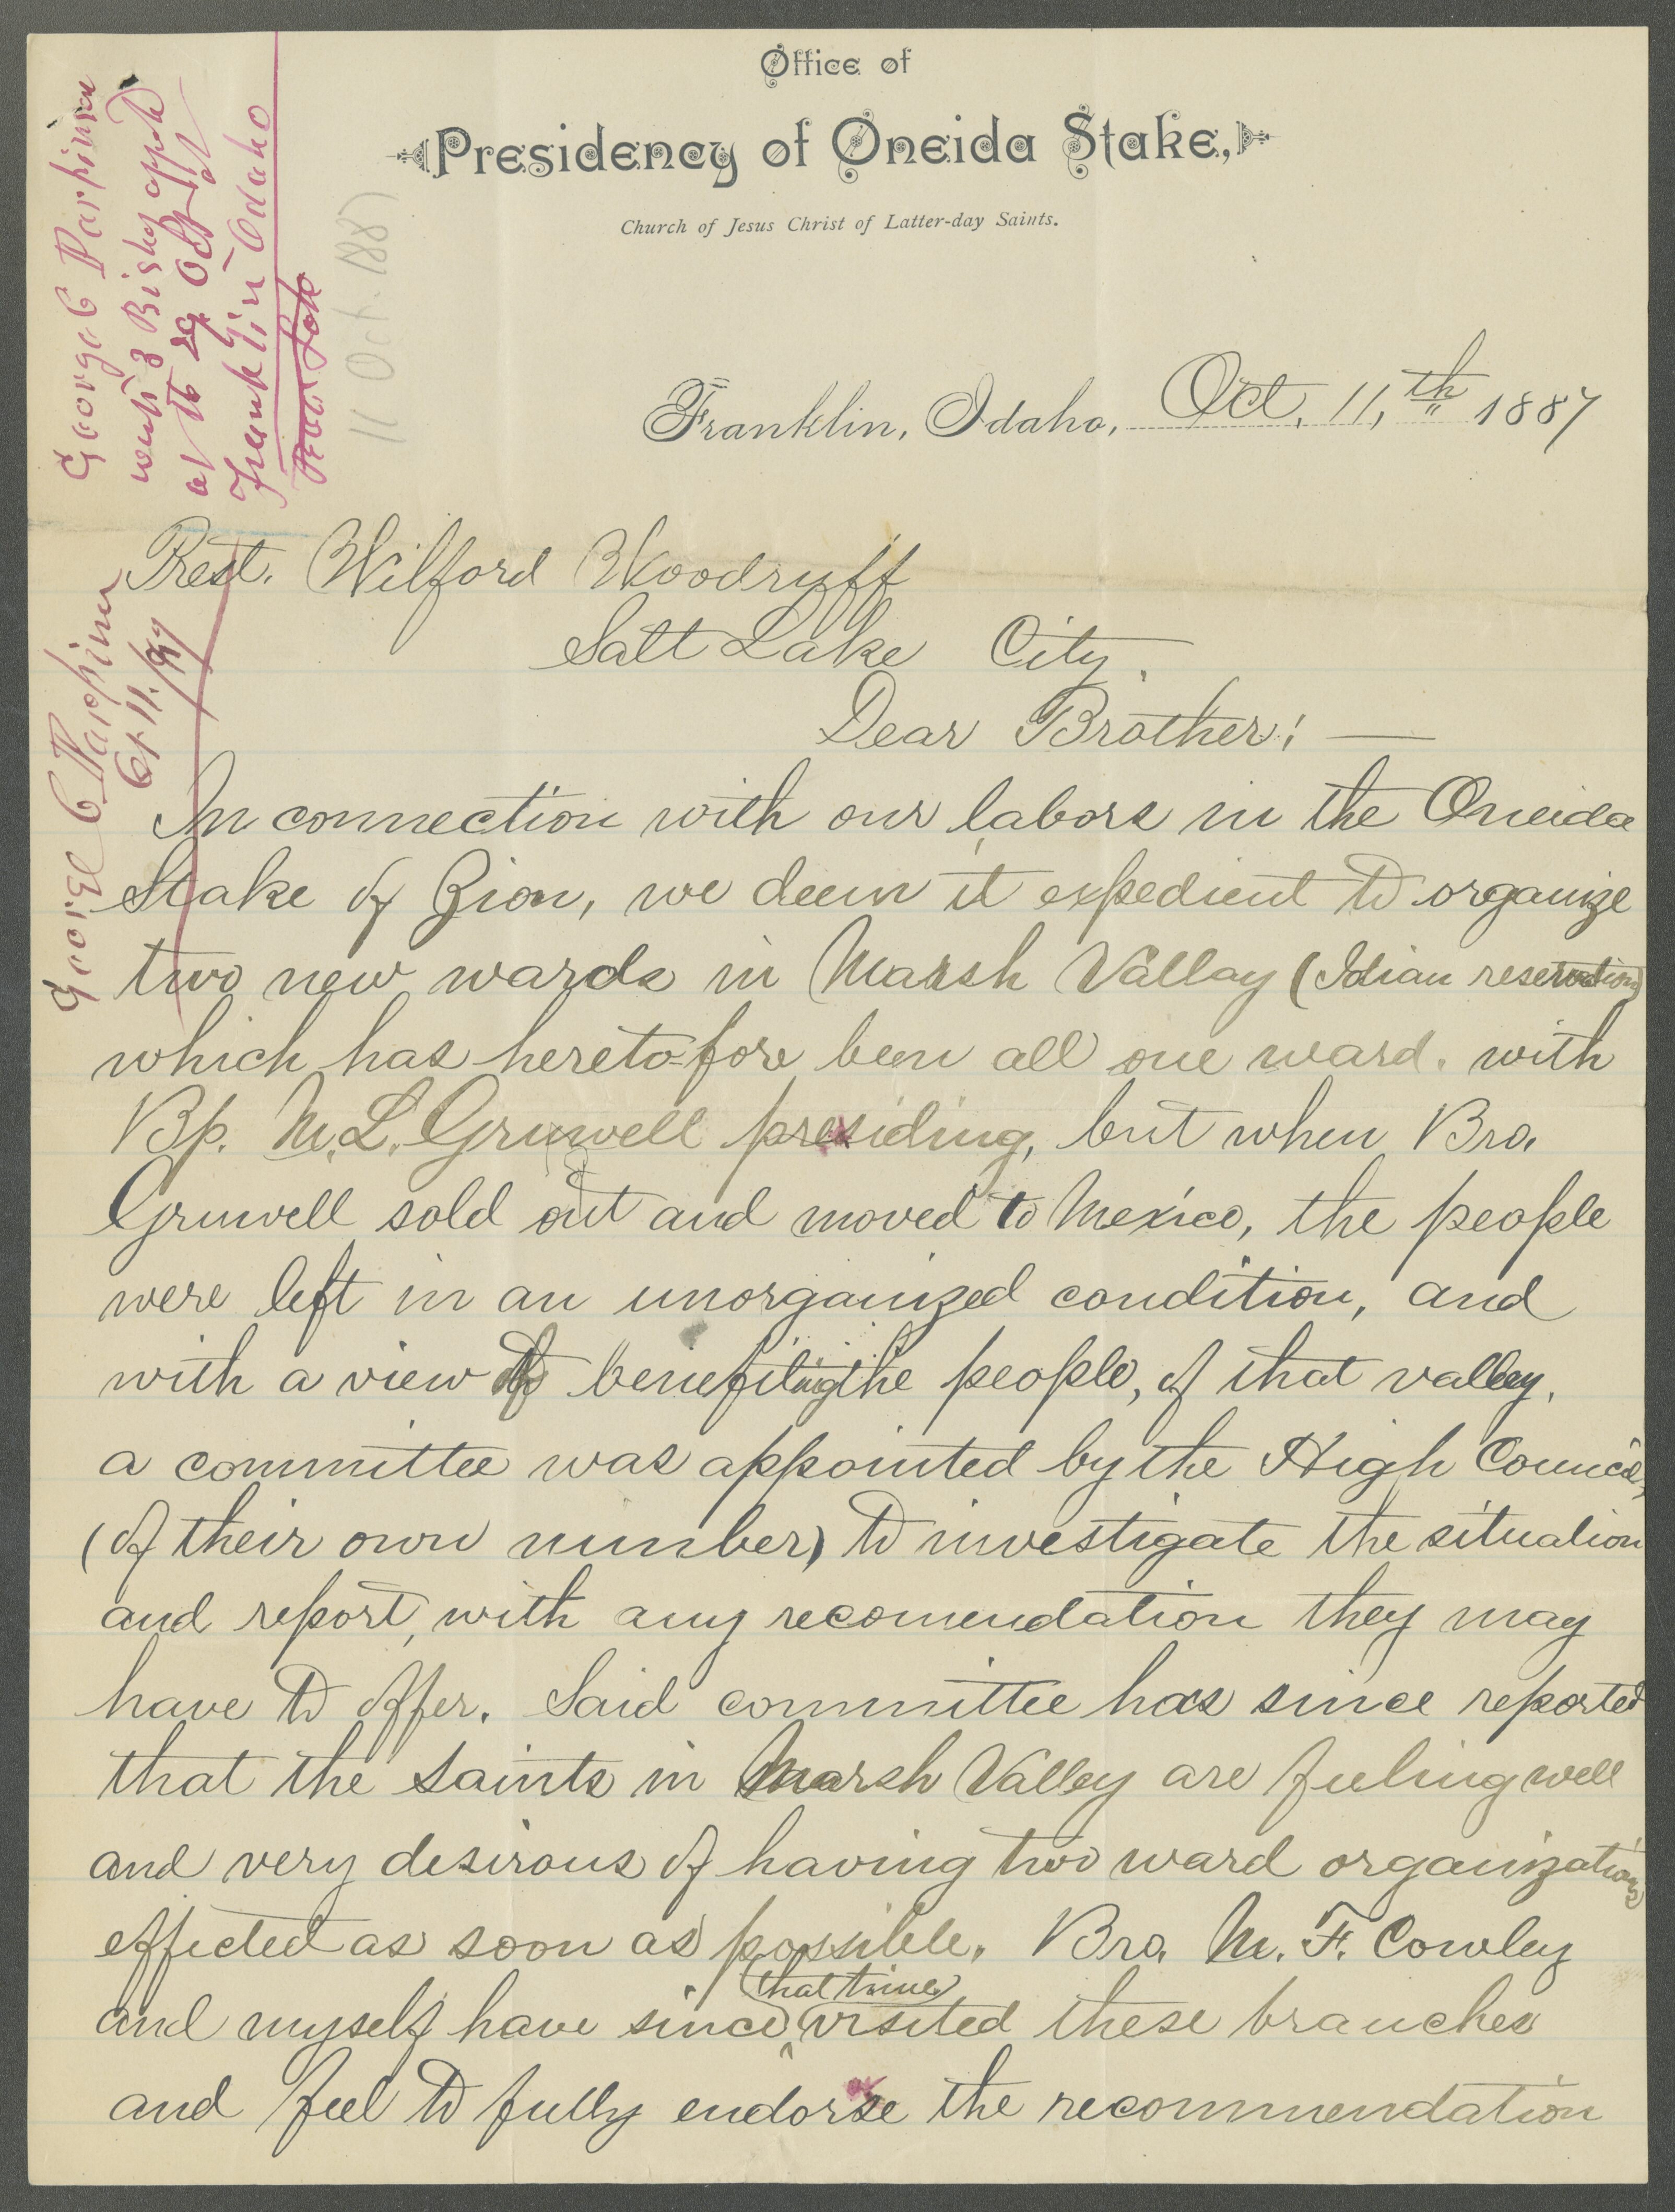 Office of
Presidency of Oneida Stake,
Church of Jesus Christ of Latter-day Saints.
George C Parkinson
wants 3 Bishops appt
at 29 Oct
Franklin Idaho
11 Oct. 1887
Franklin, Idaho, Oct. 11,th 1887
George C Parkinson
Oct 11./87
Prest. Wilford Woodruff
Salt Lake City.
Dear Brother; —
In connection with our labors in the Oneida
Stake of Zion, we deem it expedient to organize
two new wards in Marsh Vallay (Idian reservation)
which has hereto-fore been all one ward. with
Bp. M. L. Gruwell presiding, but when Bro.
Gruwell sold out and moved to Mexico, the people
were left in an unorganized condition, and
with a view to benefiting the people, of that valley.
a committee was appointed by the High Council,
(of their own number) to investigate the situation
and report, with any recomendation they may
have to offer. Said committee has since reported
that the Saints in Marsh Valley are feeling well
and very desirous of having two ward organizations
effected as soon as possible. Bro. M. F. Cowley
that time
and myself have since visited these branches
and feel to fully endorse the recommendation